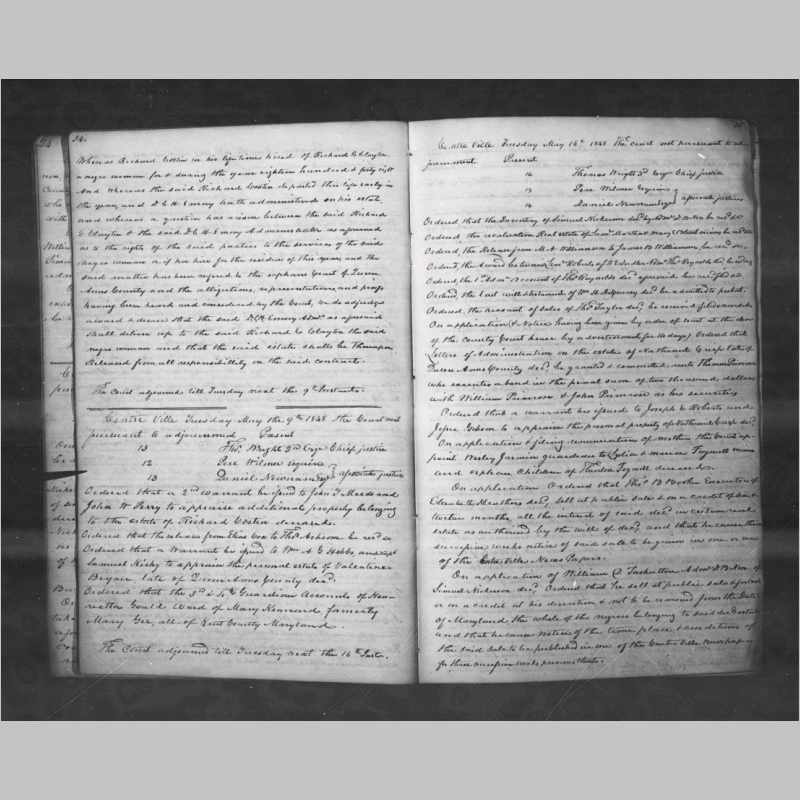 34.
Whereas Richard Costin in his life time hired of Richard E Clayton
a negro woman for & during the year eighteen hundred & forty eight
And whereas the said Richard Costin departed this life early in
the year, and D C H Emory hath administered on his estate
and whereas a question has arisen between the said Richard
E Clayton & the said D C H Emory Administrator as aforesaid
as to the rights of the said parties to the services of the said
negro woman & of her hire for the residue of this year, and the
said matter has been referred to the orphans Court of Queen
Anns County and the allegations, representations and proofs
having been heard and considered by the Court, We do adjudge
award & decree that the said Emory Admr as aforesaid
shall deliver up to the said Richard E Clayton the said
negro woman and that the said estate shall be thereupon
Released from all responsibility on the said contract.
The Court adjourned till Tuesday next the 9th Instant.
Centre Ville Tuesday May the 9th 1848 The Court met
pursuant to adjournment Present
13 Thos Wright 3rd Esqr Chief justice
12 Pere Wilmer esquire
13 Daniel Newnam Esqr associate justices
Ordered that a 2nd warrant be issued to John T Meeds and
John W Perry to appraise additional property belonging
to the estate of Richard Costin deceased.
Ordered that the release from Eliza Cox to Thos Ashcom be recd
Ordered that a Warrant be issued to Wm A G Hobbs and
Samuel Kirby to appraise the personal estate of Valentine
Bryan late of Queen Anns County decd.
Ordered that the 3d & 4th Guardian Accounts of
Gould Ward of Mary Hammond formerly
Mary Gee, all of Kent County Maryland.
The Court adjourned till Tuesday next the 16th Inst.
Centre Ville Tuesday May 16th 1848 The court met pursuant to
journment Present
14 Thomas Wright 3d Esqr Chief justice
13 Pere Wilmer Esquire
14 Daniel Newnam Esqr associate justices
Ordered that the Inventory of Simuel Nickerson decd by Admr D B N be recd &c
Ordered the valuation Real estate of
Ordered, the Release from M. A Williamson to James B Williamson be recd
Ordered, the Award between
Ordered, the 1st Admn Account of Thos Reynolds decd aforesaid be recd
Ordered, the Last will & testament of Wm H Ridgaway decd be admitted to probat.
Ordered, the Account of Sales of Thos Taylor decd be received filed & recorded
On application (& Notice having been given by order of court at the door
of the County Court house by advertisement for 10 days) Ordered that
Letters of Administration on the estate of Nathaniel Crisp late of
Queen Anns County decd be granted & committed unto Thomas
who executes a bond in the penal sum of two thousand dollars
with William Pearson & John Primrose as his securities
Ordered that a warrant be issued to Joseph E Roberts and
Jesse Gibson to appraise the personal property of Nathaniel Crisp decd.
On application & filing renunciation of mother the Court ap-
point Wesley Jarman guardian to Lydia & Marion
and orphan Children of deceased.
On application Ordered that Thos B Executor of
Elizabeth decd, sell at public sale & on a credit of six &
twelve months, all the interest of said decd in certain real
estate as authorized by the will of decd, and that he cause three
successive weeks notice of said sale to be given in one or more
of the Centre Ville News Papers.
On application of William Admr D B N of
Simuel Nickerson decd, Ordered that he sell at public sale for cash
or on a credit at his discretion & not to be removed from the State
of Maryland, the whole of the negroes belonging to said decd
and that he cause notice of the time place & conditions of
the said sale to be published in one of the Centre Ville newspapers
for three successive weeks previous thereto.